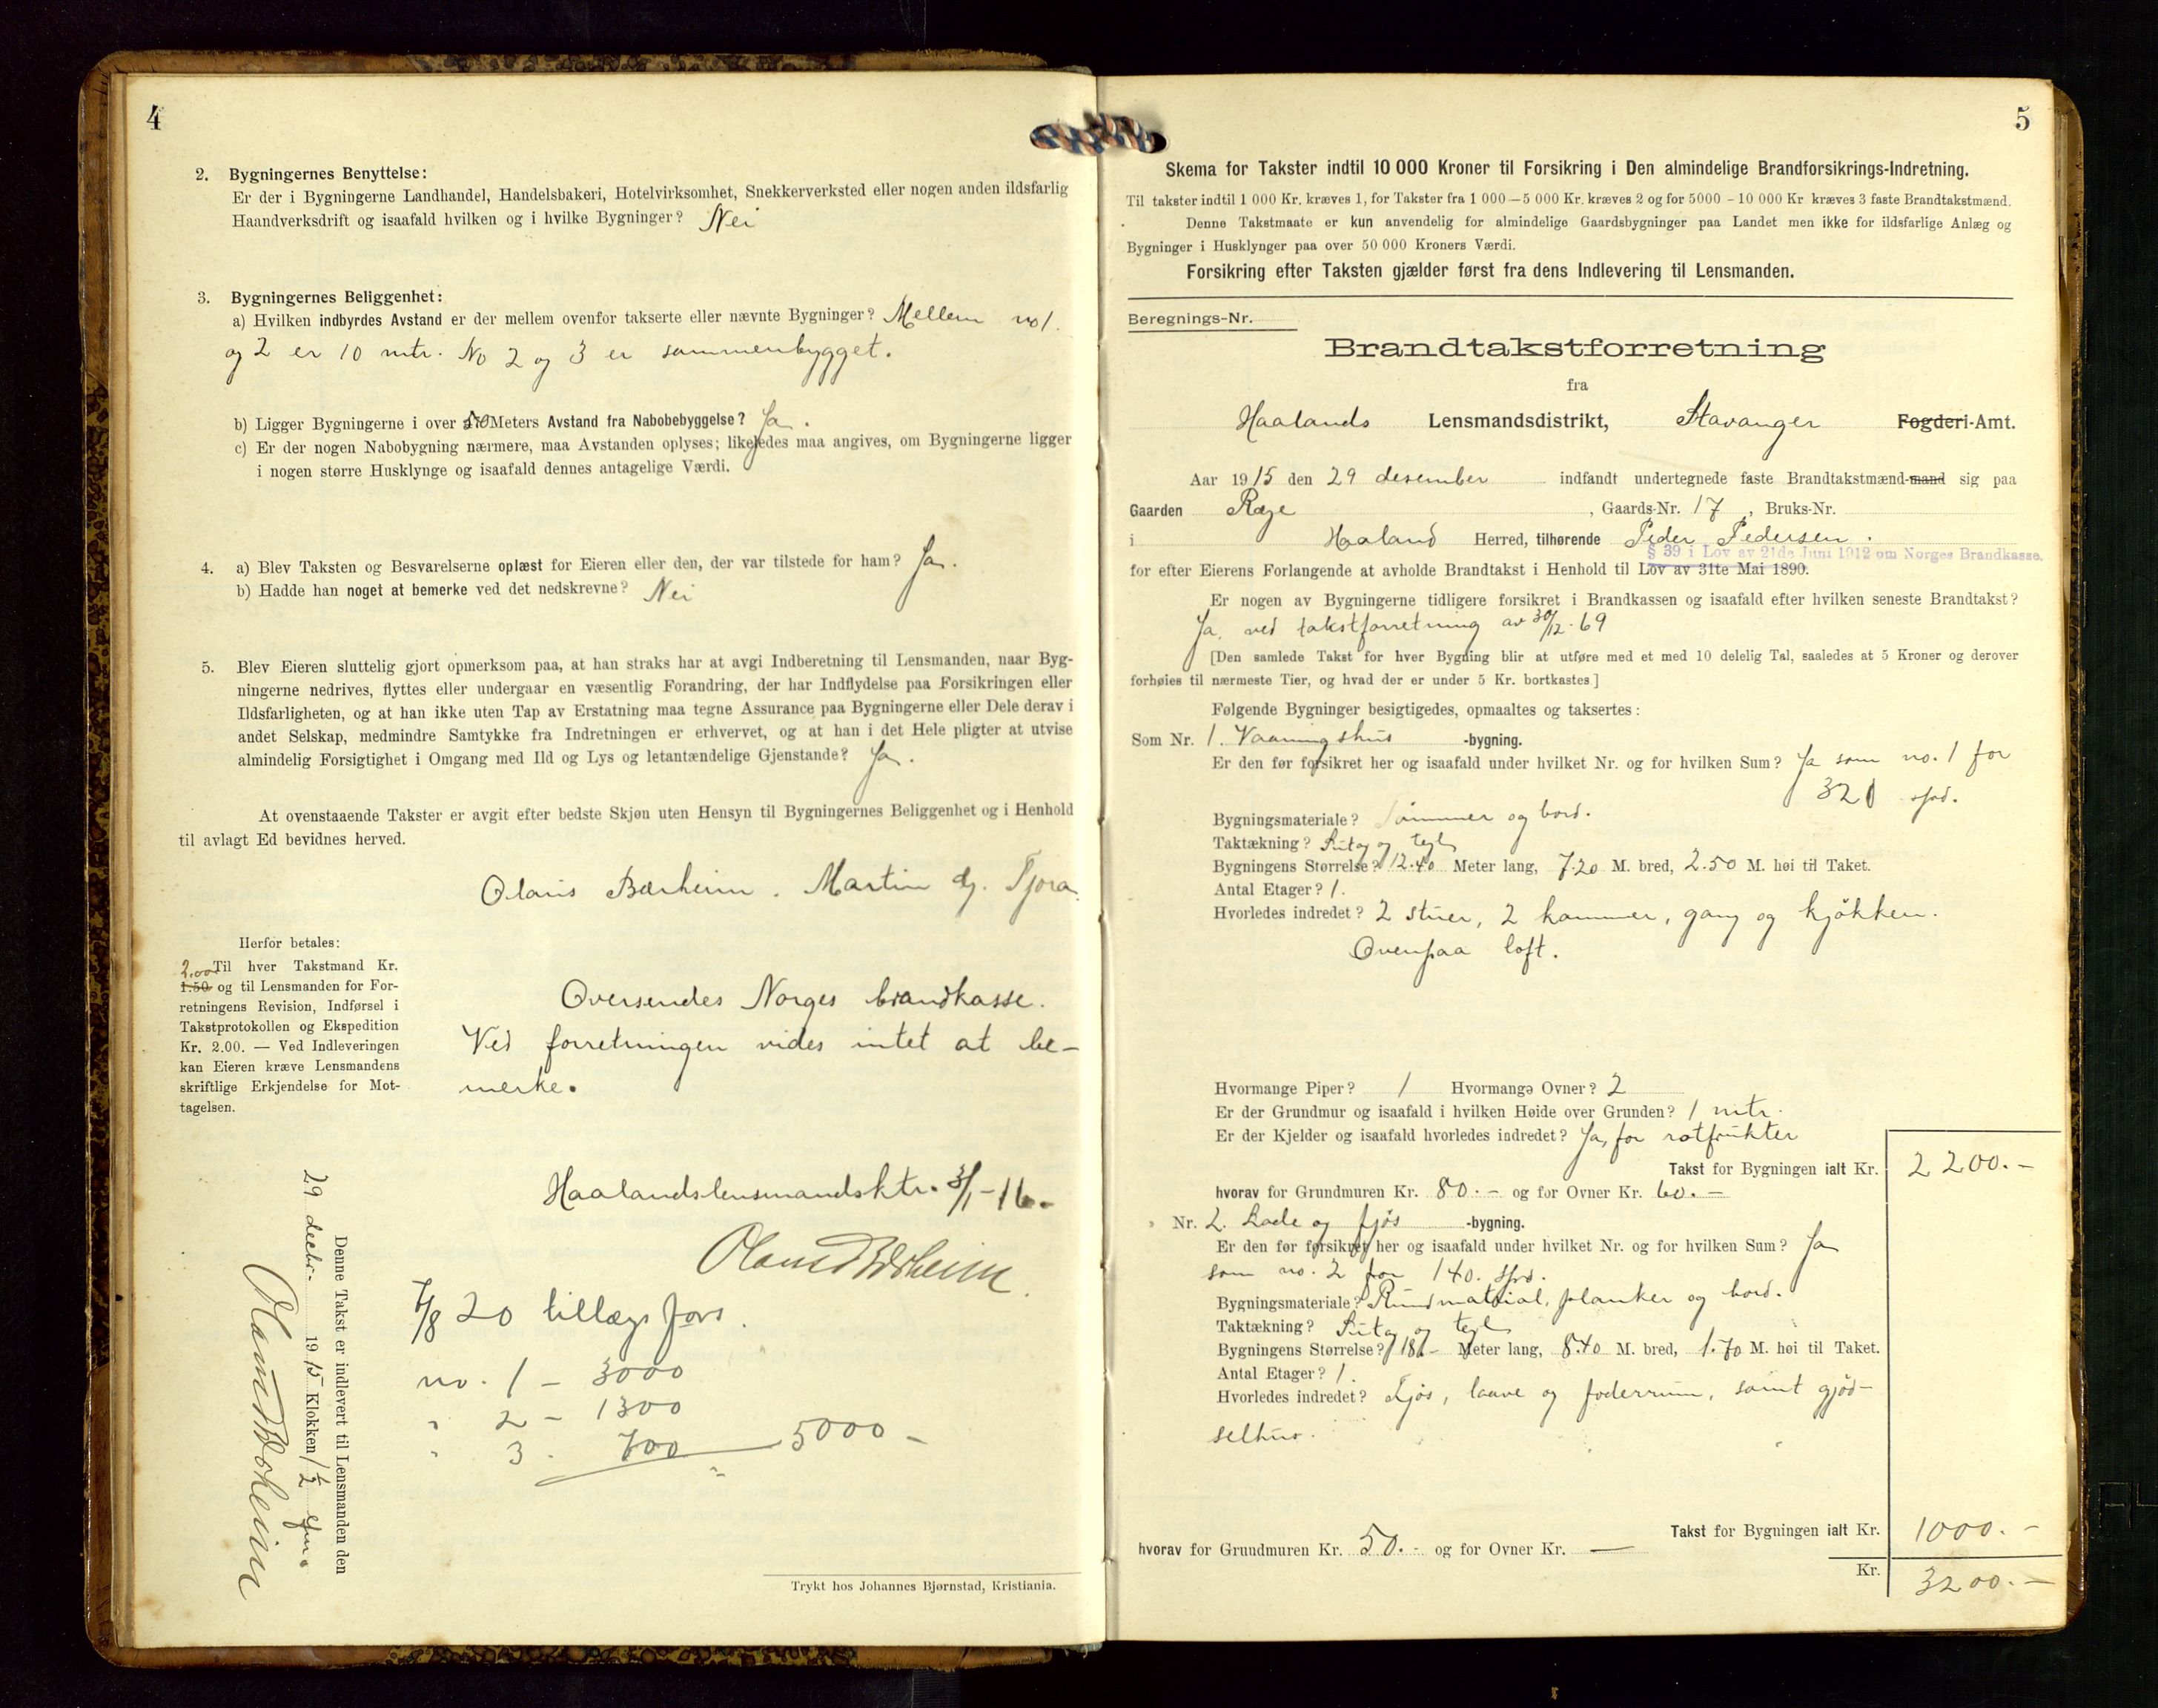 4
2. Bygningernes Benyttelse:
Er der i Bygningerne Landhandel, Handelsbakeri, Hotelvirksomhet, Snekkerverksted eller nogen anden ildsfarlig
Haandverksdrift og isaafald hvilken og i hvilke Bygninger? Nei
3. Bygningernes Beliggenhet:
a) Hvilken indbyrdes Avstand er der mellem ovenfor takserte eller nævnte Bygninger? Mellem no 1.
og 2 er 10 mtr. No 2 og 3 er sammenbygget.
b) Ligger Bygningerne i over Meters Avstand fra Nabobebyggelse? Ja.
c) Er der nogen Nabobygning nærmere, maa Avstanden oplyses; likeledes maa angives, om Bygningerne ligger
i nogen større Husklynge og isaafald dennes antagelige Værdi.
4. a) Blev Taksten og Besvarelserne oplæst for Eieren eller den, der var tilstede for ham? Ja.
b) Hadde han noget at bemerke ved det nedskrevne? Nei
5. Blev Eieren sluttelig gjort opmerksom paa, at han straks har at avgi Indberetning til Lensmanden, naar Byg-
ningerne nedrives, flyttes eller undergaar en væsentlig Forandring, der har Indflydelse paa Forsikringen eller
Ildsfarligheten, og at han ikke uten Tap av Erstatning maa tegne Assurance paa Bygningerne eller Dele derav i
andet Selskap, medmindre Samtykke fra Indretningen er erhvervet, og at han i det Hele pligter at utvise
almindelig Forsigtighet i Omgang med Ild og Lys og letantændelige Gjenstande? Ja.
At ovenstaaende Takster er avgit efter bedste Skjøn uten Hensyn til Bygningernes Beliggenhet og i Henhold
til avlagt Ed bevidnes herved.
Olaus Bærheim. Martin Tjora.
Herfor betales:
2.00 Til hver Takstmand Kr.
1.50 og til Lensmanden for For-
retningens Revision, Indførsel i
Takstprotokollen og Ekspedition
Kr. 2.00. — Ved Indleveringen
kan Eieren kræve Lensmandens
skriftlige Erkjendelse for Mot-
tagelsen.
Oversendes Norges brandkasse.
Ved forretningen vides intet at be-
merke.
Haalandslensmandsktr. 3/1-16.
Olaus Bærheim.
Denne Takst er indlevert til Lensmanden den
29 decbr. 1915 Klokken 1 1/2 efm.
Olaus Bærheim
7/8 20 tillægsfors.
no. 1 - 3000
" 2 - 1300
" 3. 700 5000 -
Trykt hos Johannes Bjørnstad, Kristiania.
5
Skema for Takster indtil 10 000 Kroner til Forsikring i Den almindelige Brandforsikrings-Indretning.
Til takster indtil 1 000 Kr. kræves 1, for Takster fra 1 000—5 000 Kr. kræves 2 og for 5000 - 10 000 Kr kræves 3 faste Brandtakstmænd.
Denne Takstmaate er kun anvendelig for almindelige Gaardsbygninger paa Landet men ikke for ildsfarlige Anlæg og
Bygninger i Husklynger paa over 50 000 Kroners Værdi.
Forsikring efter Taksten gjælder først fra dens Indlevering til Lensmanden.
Beregnings-Nr.
Brandtakstforretning
fra
Haalands Lensmandsdistrikt, Stavanger Fogderi-Amt.
Aar 1915 den 29 desember indfandt undertegnede faste Brandtakstmænd-mand sig paa
Gaarden Ræge, Gaards-Nr. 17, Bruks-Nr.
i Haaland Herred, tilhørende Peder Pedersen.
§ 39 i Lov av 21de Juni 1912 om Norges Brandkasse.
for efter Eierens Forlangende at avholde Brandtakst i Henhold til Lov av 31te Mai 1890.
Er nogen av Bygningerne tidligere forsikret i Brandkassen og isaafald efter hvilken seneste Brandtakst?
Ja, ved takstforretning av 30/12-69
[Den samlede Takst for hver Bygning blir at utføre med et med 10 delelig Tal, saaledes at 5 Kroner og derover
forhøies til nærmeste Tier, og hvad der er under 5 Kr. bortkastes.]
Følgende Bygninger besigtigedes, opmaaltes og taksertes:
Som Nr. 1. Vaaningshus -bygning.
Er den før forsikret her og isaafald under hvilket Nr. og for hvilken Sum? Ja som no. 1 for
spd.
Bygningsmateriale? Tømmer og bord.
Taktækning? Sutag og tegl
Bygningens Størrelse? 12.40 Meter lang, 7.20 M. bred, 2.50 M. høi til Taket.
Antal Etager? 1.
Hvorledes indredet? 2 stuer, 2 kammer, gang og kjøkken.
Ovenpaa loft.
Hvormange Piper? 1 Hvormange Ovner? 2
Er der Grundmur og isaafald i hvilken Høide over Grunden? 1 mtr.
Er der Kjelder og isaafald hvorledes indredet? Ja, for rotfrukter
Takst for Bygningen ialt Kr. 2200.-
hvorav for Grundmuren Kr. 80.- og for Ovner Kr. 60.-
Nr. 2. Lade og fjøs -bygning.
Er den før forsikret her og isaafald under hvilket Nr. og for hvilken Sum? Ja
som no. 2 for 140. spd.
Bygningsmateriale? Rundmaterial, planker og bord.
Taktækning? Sutag og tegl
Bygningens Størrelse? 18,- Meter lang, 8.40 M. bred, 1.70 M. høi til Taket.
Antal Etager? 1.
Hvorledes indredet? Fjøs, laave og foderrum, samt gjød-
selhus.
Takst for Bygningen ialt Kr. 1000.-
hvorav for Grundmuren Kr. 50.- og for Ovner Kr. —
Kr. 3200.-